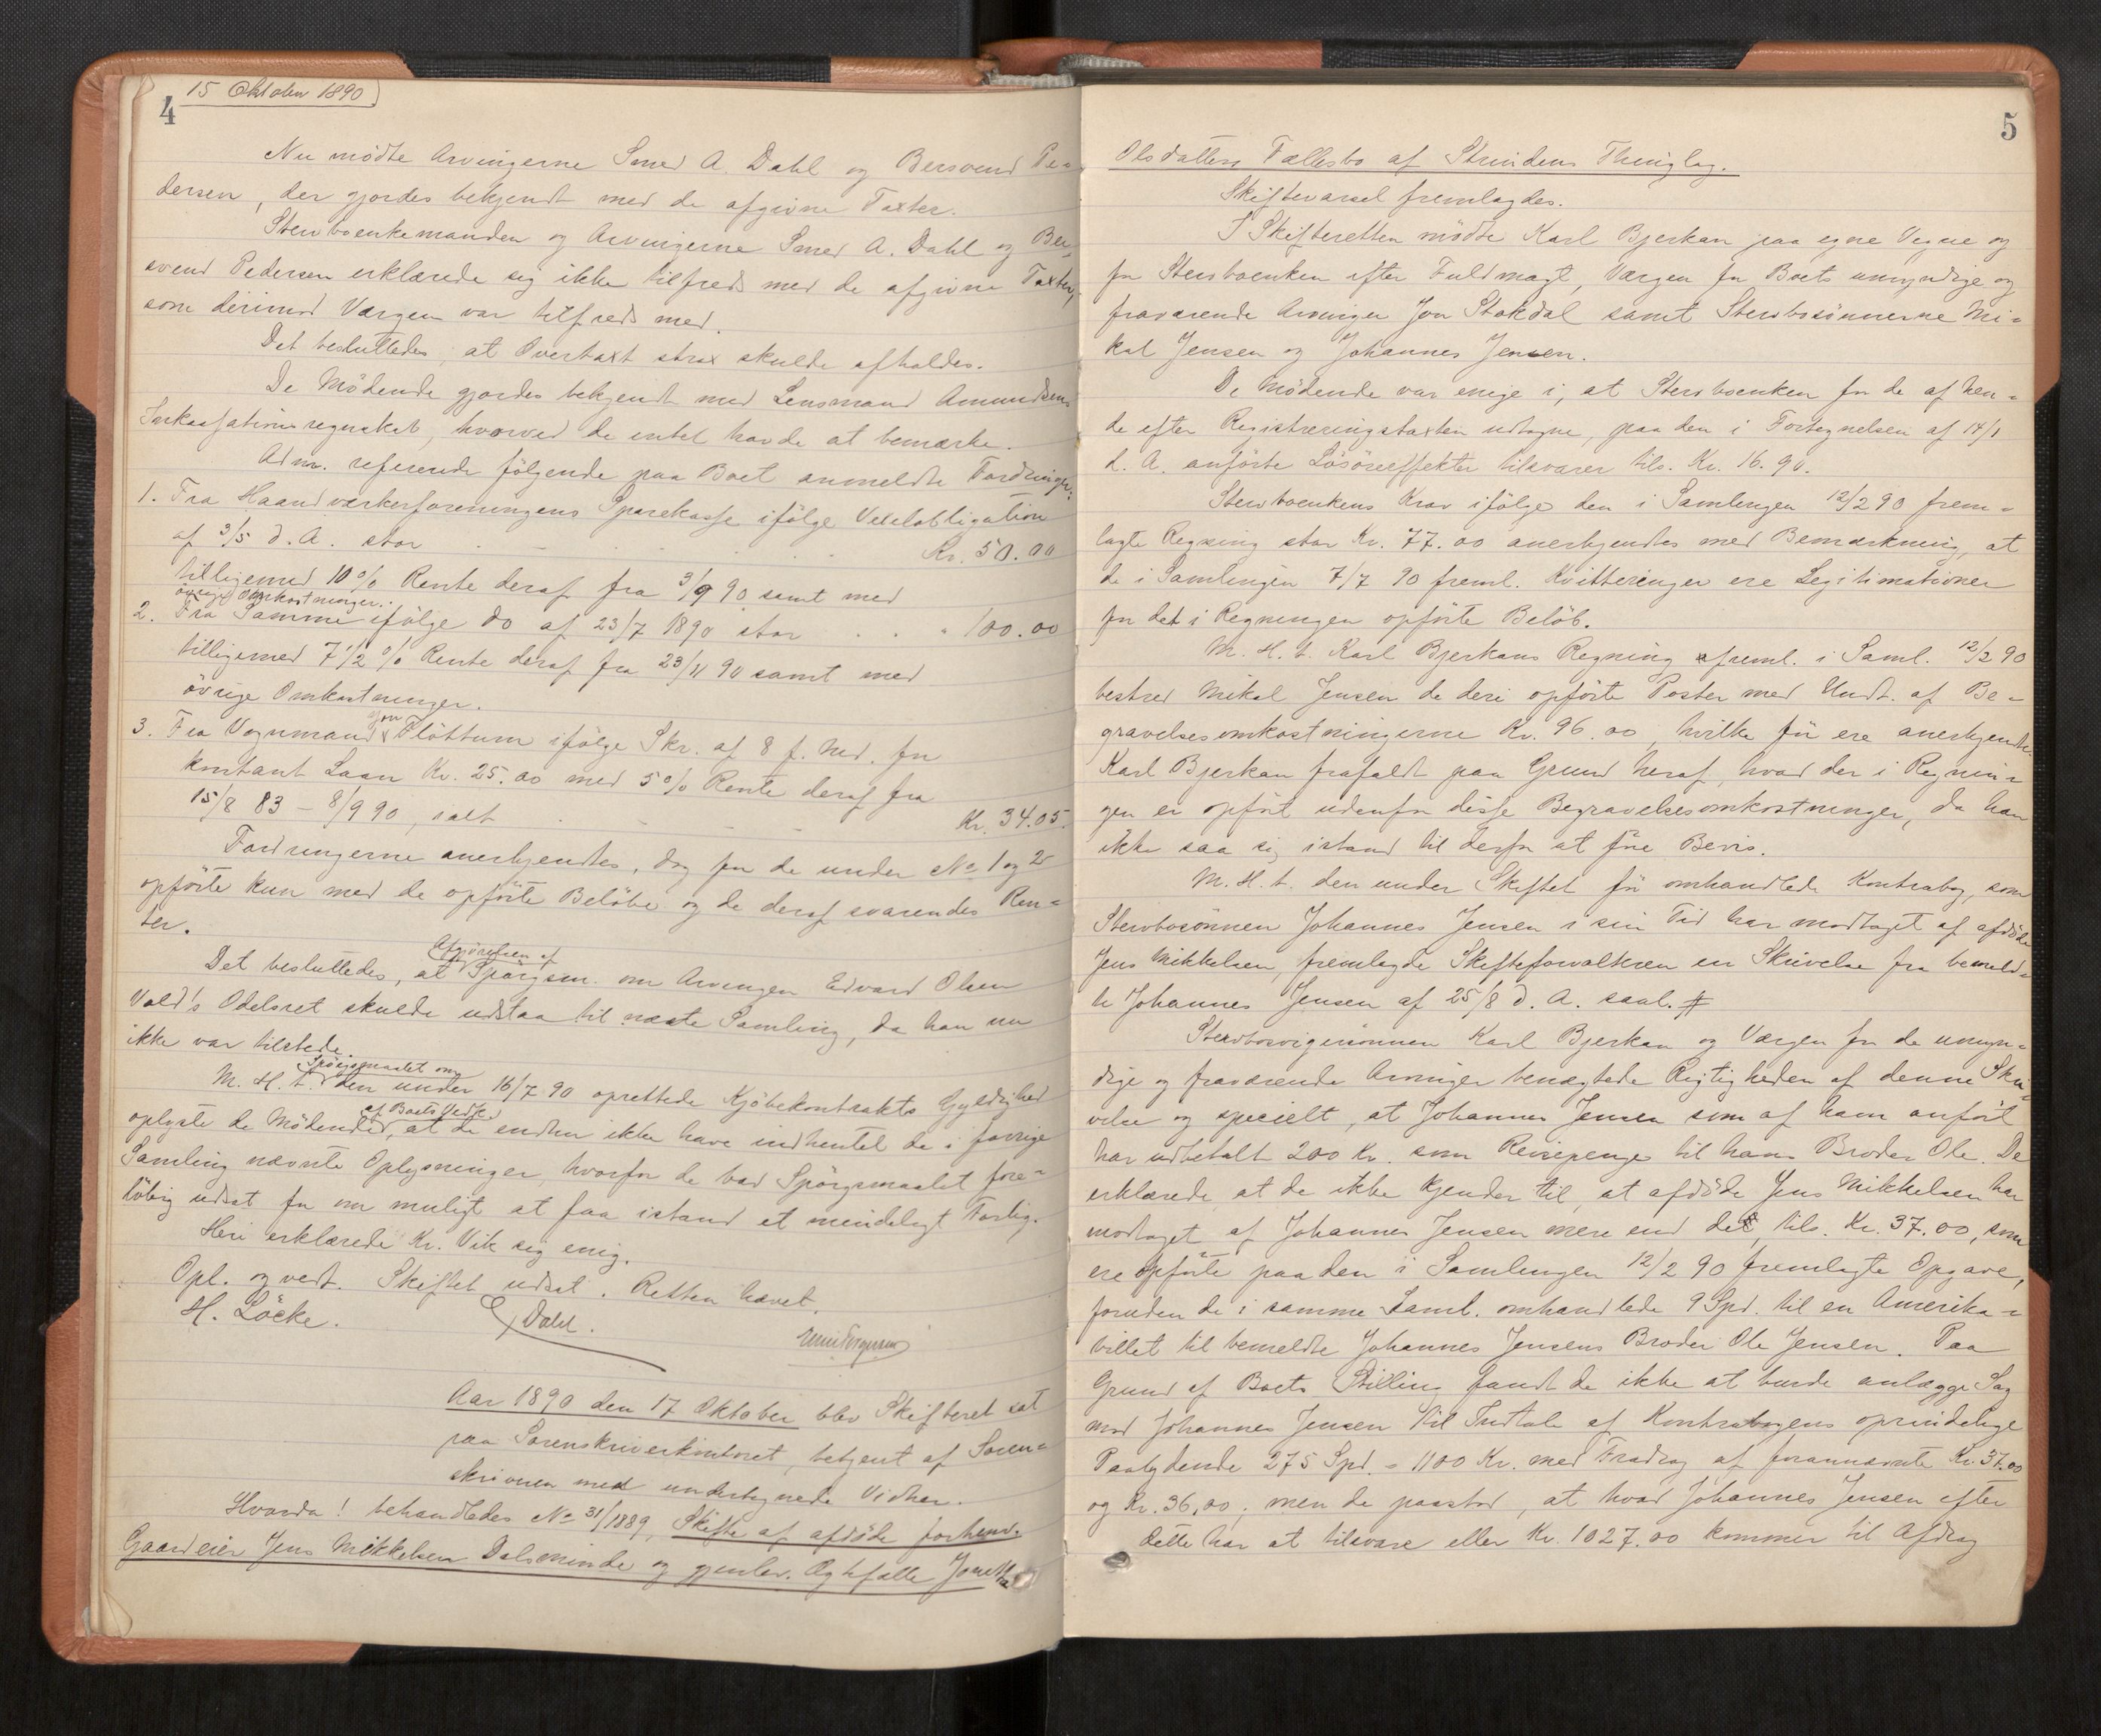 15 Oktober 1890
4
Nu mödte Arvingerne Smed A. Dahl og Bersvend Pe-
dersen, der gjordes bekjendt med de afgivne Taxter.
Stervboenkemanden og Arvingerne Smed A. Dahl og Ber-
svend Pedersen erklærede sig ikke tilfreds med de afgivne Taxter,
som derimod Værgen var tilfreds med.
Det besluttedes, at Overtaxt strax skulde afholdes.
De Mödende gjordes bekjendt med Lensmand Amundsens
Inkassationsregnskab, hvorved de intet havde at bemærke.
Adm. refererede fölgende paa Boet anmeldte Fordringer:
1. Fra Haandværkerforeningens Sparekasse ifölge Vexelobligation
af 3/5 d. A. stor . . . . . Kr. 50.00
tilligemed 10% Rente deraf fra 3/9 90 samt med
övrige Omkostninger.
2. Fra Samme ifölge do af 23/7 1890 stor . . " 100.00
tilligemed 7 1/2 % Rente deraf fra 23/11 90 samt med
övrige Omkostninger.
3. Fra Vognmand Jon Flöttum ifölge Skr. af 8 f. Md. for
kontant Laan Kr. 25.00 med 5% Rente deraf fra
15/8 83 - 8/9 90, ialt . - - - Kr. 34.05.
Fordringerne anerkjendtes, dog for de under No 1 og 2
opförte kun med de opförte Belöbe og de deraf svarendes Ren-
ter.
Det besluttedes, at Afgjörelsen af Spörgsm. om Arvingen Edvard Olsen
Vold's Odelsret skulde udstaa til næste Samling, da han nu
ikke var tilstede.
M. H. t. Spörgsmaalet om den under 16/7 90 oprettede Kjöbekontrakts Gyldighed
oplyste de Mödende af Boets Vedk., at de endnu ikke have indhentet de i forrige
Samling nævnte Oplysninger, hvorfor de bad Spörgsmaalet fore-
löbig udsat for om muligt at faa istand et mindeligt Forlig.
Heri erklærede Kr. Vik sig enig.
Opl. og vedt. Skiftet udsat. Retten hævet.
H. Löcke. Dahl.
Aar 1890 den 17 Oktober blev Skifteret sat
paa Sorenskriverkontoret, betjent af Soren-
skriveren med undertegnede Vidner.
Hvorda! behandledes No 31/1889, Skifte af afdöde forhenv.
Gaardeier Jens Mikkelsen Dalsminde og gjenlev. Ægtefælle Jonetta
5
Olsdatters Fællesbo af Strindens Thinglag.
Skiftevarsel fremlagdes.
I Skifteretten mödte Karl Bjerkan paa egne Vegne og
for Stervboenken efter Fuldmagt, Værgen for Boets umyndige og
fraværende Arvinger Jon Stokdal samt Stervbosönnerne Mi-
kal Jensen og Johannes Jensen.
De Mödende var enige i, at Stervboenken for de af hen-
de efter Registreringstaxten udtagne, paa den i Fortegnelsen af 14/1
d. A. anförte Lösöreeffekter tilsvarer tils. Kr. 16.90.
Stervboenkens Krav ifölge den i Samlingen 12/2 90 frem-
lagte Regning stor Kr. 77.00 anerkjendtes med Bemærkning, at
de i Samlingen 7/7 90 freml. Kvitteringer ere Legitimationer
for det i Regningen opförte Belöb.
M. H. t. Karl Bjerkans Regning freml. i Saml. 12/2 90
bestred Mikal Jensen de deri opförte Poster med Undt. af Be-
gravelsesomkostningerne Kr. 96.00, hvilke för ere anerkjendte.
Karl Bjerkan frafaldt paa Grund heraf, hvad der i Regnin-
gen er opfört udenfor disse Begravelsesomkostninger, da han
ikke saa sig istand til derfor at före Bevis.
M. H. t. den under Skiftet för omhandlede Kontrabog, som
Stervbosönnen Johannes Jensen i sin Tid har modtaget af afdöde
Jens Mikkelsen, fremlagde Skifteforvalteren en Skrivelse fra bemeld-
te Johannes Jensen af 25/8 d. A. saal. #
Stervbosvigersönnen Karl Bjerkan og Værgen for de umyn-
dige og fraværende Arvinger benægtede Rigtigheden af denne Skri-
velse og specielt, at Johannes Jensen som af ham anfört
har udbetalt 200 Kr. som Reisepenge til hans Broder Ole. De
erklærede, at de ikke kjender til, at afdöde Jens Mikkelsen har
modtaget af Johannes Jensen mere end det, tils. Kr. 37.00, som
ere opförte paa den i Samlingen 12/2 90 fremlagte Opgave,
foruden de i samme Saml. omhandlede 9 Spd. til en Amerika-
billet til bemeldte Johannes Jensens Broder Ole Jensen. Paa
Grund af Boets Stilling fandt de ikke at burde anlægge Sag
mod Johannes Jensen til Indtale af Kontrabogens oprindelige
Paalydende 275 Spd. = 1100 Kr. med Fradrag af forannævnte Kr. 37.00
og Kr. 36.00; men de paastod, at hvad Johannes Jensen efter
dette har at tilsvare eller Kr. 1027.00 kommer til Afdrag